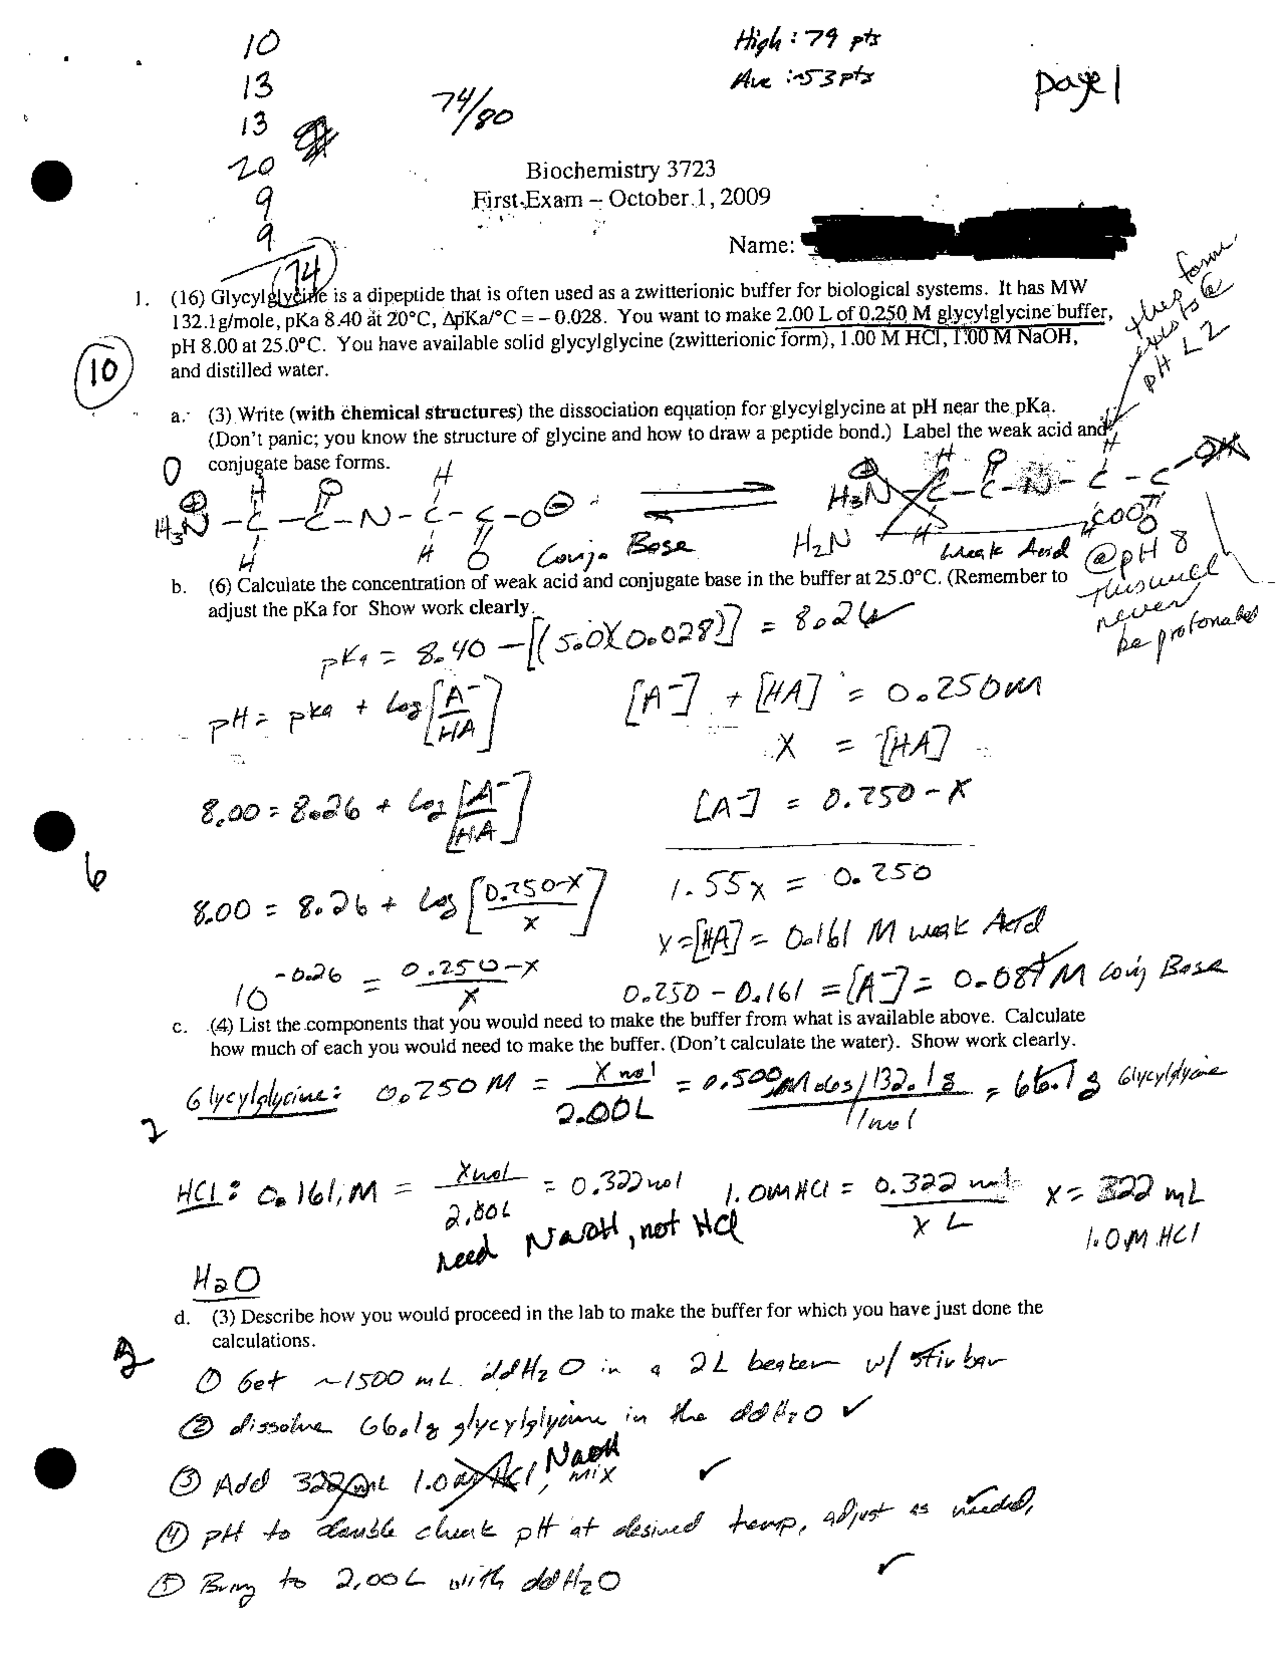 10
13
13
20
9
9
74
74/80
High: 79 pts
Ave: ~53 pts
page 1
Biochemistry 3723
First Exam – October 1, 2009
Name:
this form exists @ pH < 2
1. (16) Glycylglycine is a dipeptide that is often used as a zwitterionic buffer for biological systems. It has MW
132.1g/mole, pKa 8.40 at 20°C, ΔpKa/°C = – 0.028. You want to make 2.00 L of 0.250 M glycylglycine buffer,
pH 8.00 at 25.0°C. You have available solid glycylglycine (zwitterionic form), 1.00 M HCl, 1.00 M NaOH,
and distilled water.
10
a. (3) Write (with chemical structures) the dissociation equation for glycylglycine at pH near the pKa.
(Don't panic; you know the structure of glycine and how to draw a peptide bond.) Label the weak acid and
conjugate base forms.
0
H H
H3N – C – C – N – C – C – O ⊖ ⇌ H3N – C – C – N – C – C – OH
H O H O
Conj. Base
H2N
H
Weak Acid
COO
@pH 8
this will never be protonated
b. (6) Calculate the concentration of weak acid and conjugate base in the buffer at 25.0°C. (Remember to
adjust the pKa for Show work clearly.
pKa = 8.40 – [(5.0)(0.028)] = 8.26
pH = pka + log [A-/HA]
[A-] + [HA] = 0.250M
X = [HA]
8.00 = 8.26 + log [A-]/[HA]
[A-] = 0.250 - X
6
8.00 = 8.26 + log [0.250-X / X]
1.55x = 0.250
X = [HA] = 0.161 M weak Acid
10^-0.26 = 0.250-X / X
0.250 - 0.161 = [A-] = 0.089 M Conj Base
c. (4) List the components that you would need to make the buffer from what is available above. Calculate
how much of each you would need to make the buffer. (Don't calculate the water). Show work clearly.
Glycylglycine: 0.250 M = X mol / 2.00L = 0.500 Moles / 132.1g / 1 mol = 66.1g Glycylglycine
2
HCl: 0.161 M = X mol / 2.00L = 0.322 mol 1.0M HCl = 0.322 mol / X L X = 322 mL 1.0 M HCl
need NaOH, not HCl
H2O
d. (3) Describe how you would proceed in the lab to make the buffer for which you have just done the
calculations.
2
① Get ~1500 mL ddH2O in a 2L beaker w/ stir bar
② dissolve 66.1g glycylglycine in the ddH2O ✓
③ Add 322 mL 1.0 M HCl, NaOH mix ✓
④ pH to double check pH at desired temp, adjust as needed,
⑤ Bring to 2.00L with ddH2O ✓